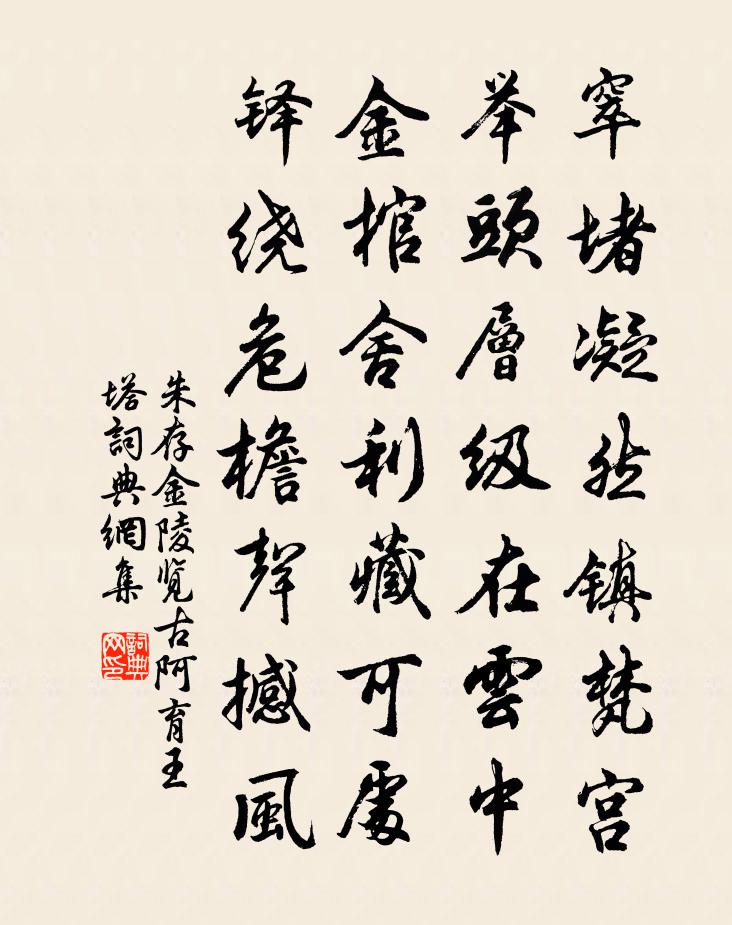 窣堵凝然镇梵宫
举頭層级在雲中
金棺舍利藏可處
铎绕危檐聲撼風
朱存金陵览古阿育王
塔詞典網集
詞典
网印